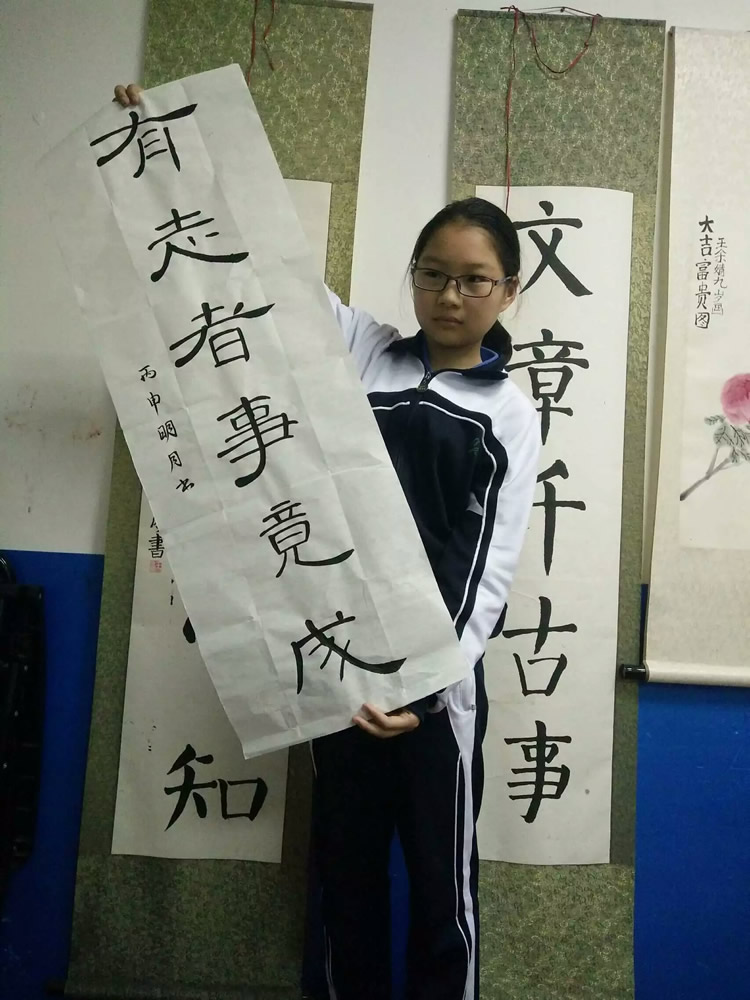 有志者事竟成
丙申明月书
文章千古事
大吉富贵图
九岁画
知
書